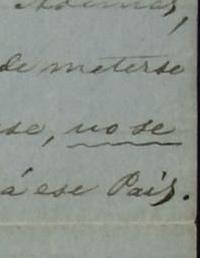 Además,
de meterse
se, no se
á ese País.